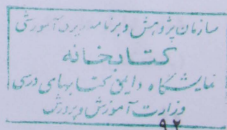 سازمان پژوهش و برنامه ریزی آموزشی
کتابخانه
نمایشگاه دائمی کتابهای درسی
وزارت آموزش و پرورش
۹۲